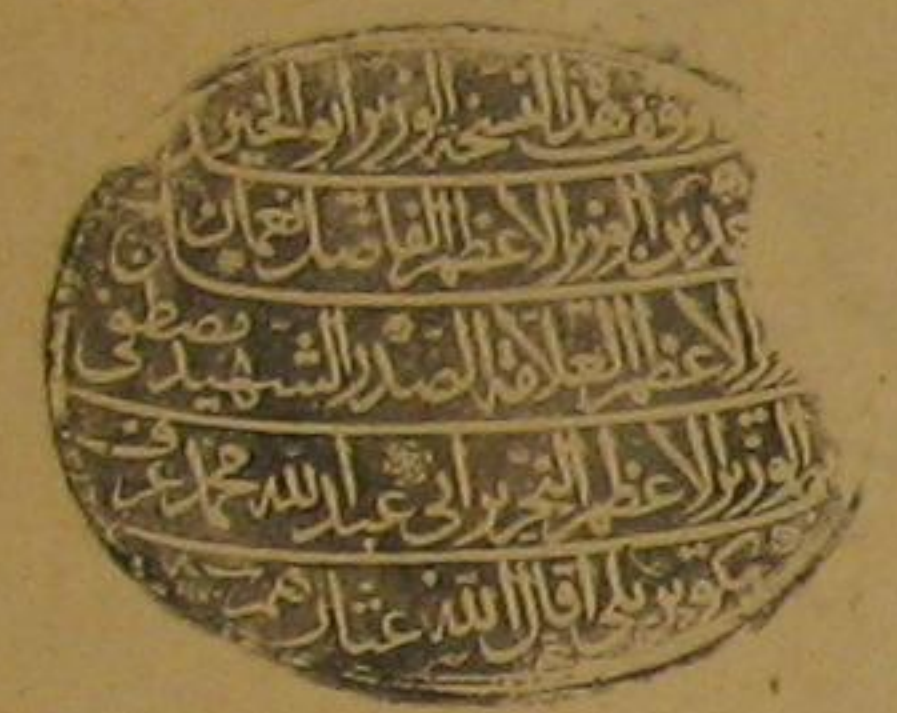 وقف هذا النسخة الوزير ابو الخير
احمد بن الوزير الاعظم الفاضل نعمان بن
الوزير الاعظم العلامة الصدر الشهيد مصطفى
بن الوزير الاعظم النحرير ابي عبد الله محمد عرف
بكوبريلي اقال الله عثارهم